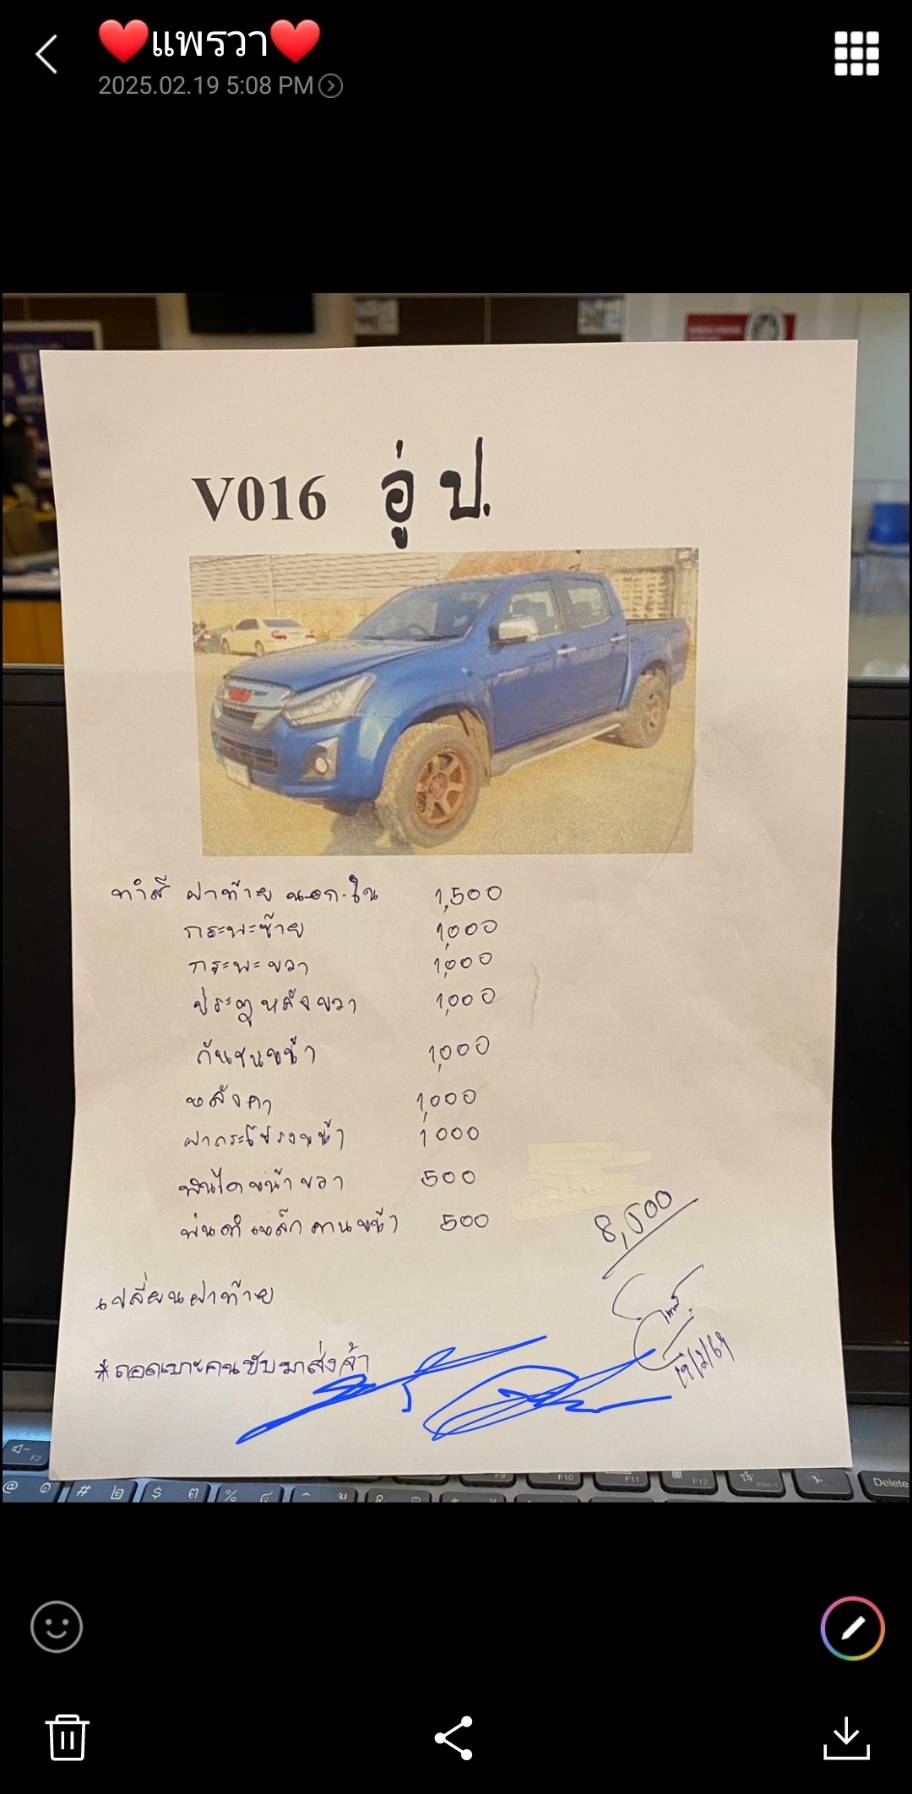 ❤️แพรวา❤️
2025.02.19 5:08 PM
V016 อู่ ป.
ทำสี ฝาท้าย นอก-ใน 1,500
กระพะซ้าย 1,000
กระพะขวา 1,000
ประตูหลังขวา 1,000
กันชนหน้า 1,000
หลังคา 1,000
ฝากระโปรงหน้า 1000
บันไดหน้าขวา 500
พ่นดำเหล็กคานหน้า 500
8,500
เปลี่ยนฝาท้าย
*ถอดเบาะคนขับมาส่งจ้า
F2
F9
F10
F11
F12
Delete
@ ๑ # ๒ $ ๓ % ๔